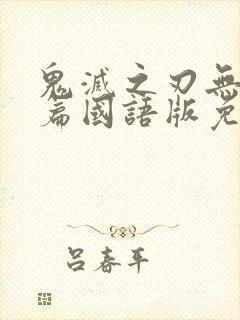 鬼滅之刃無
篇國語版免
呂春平